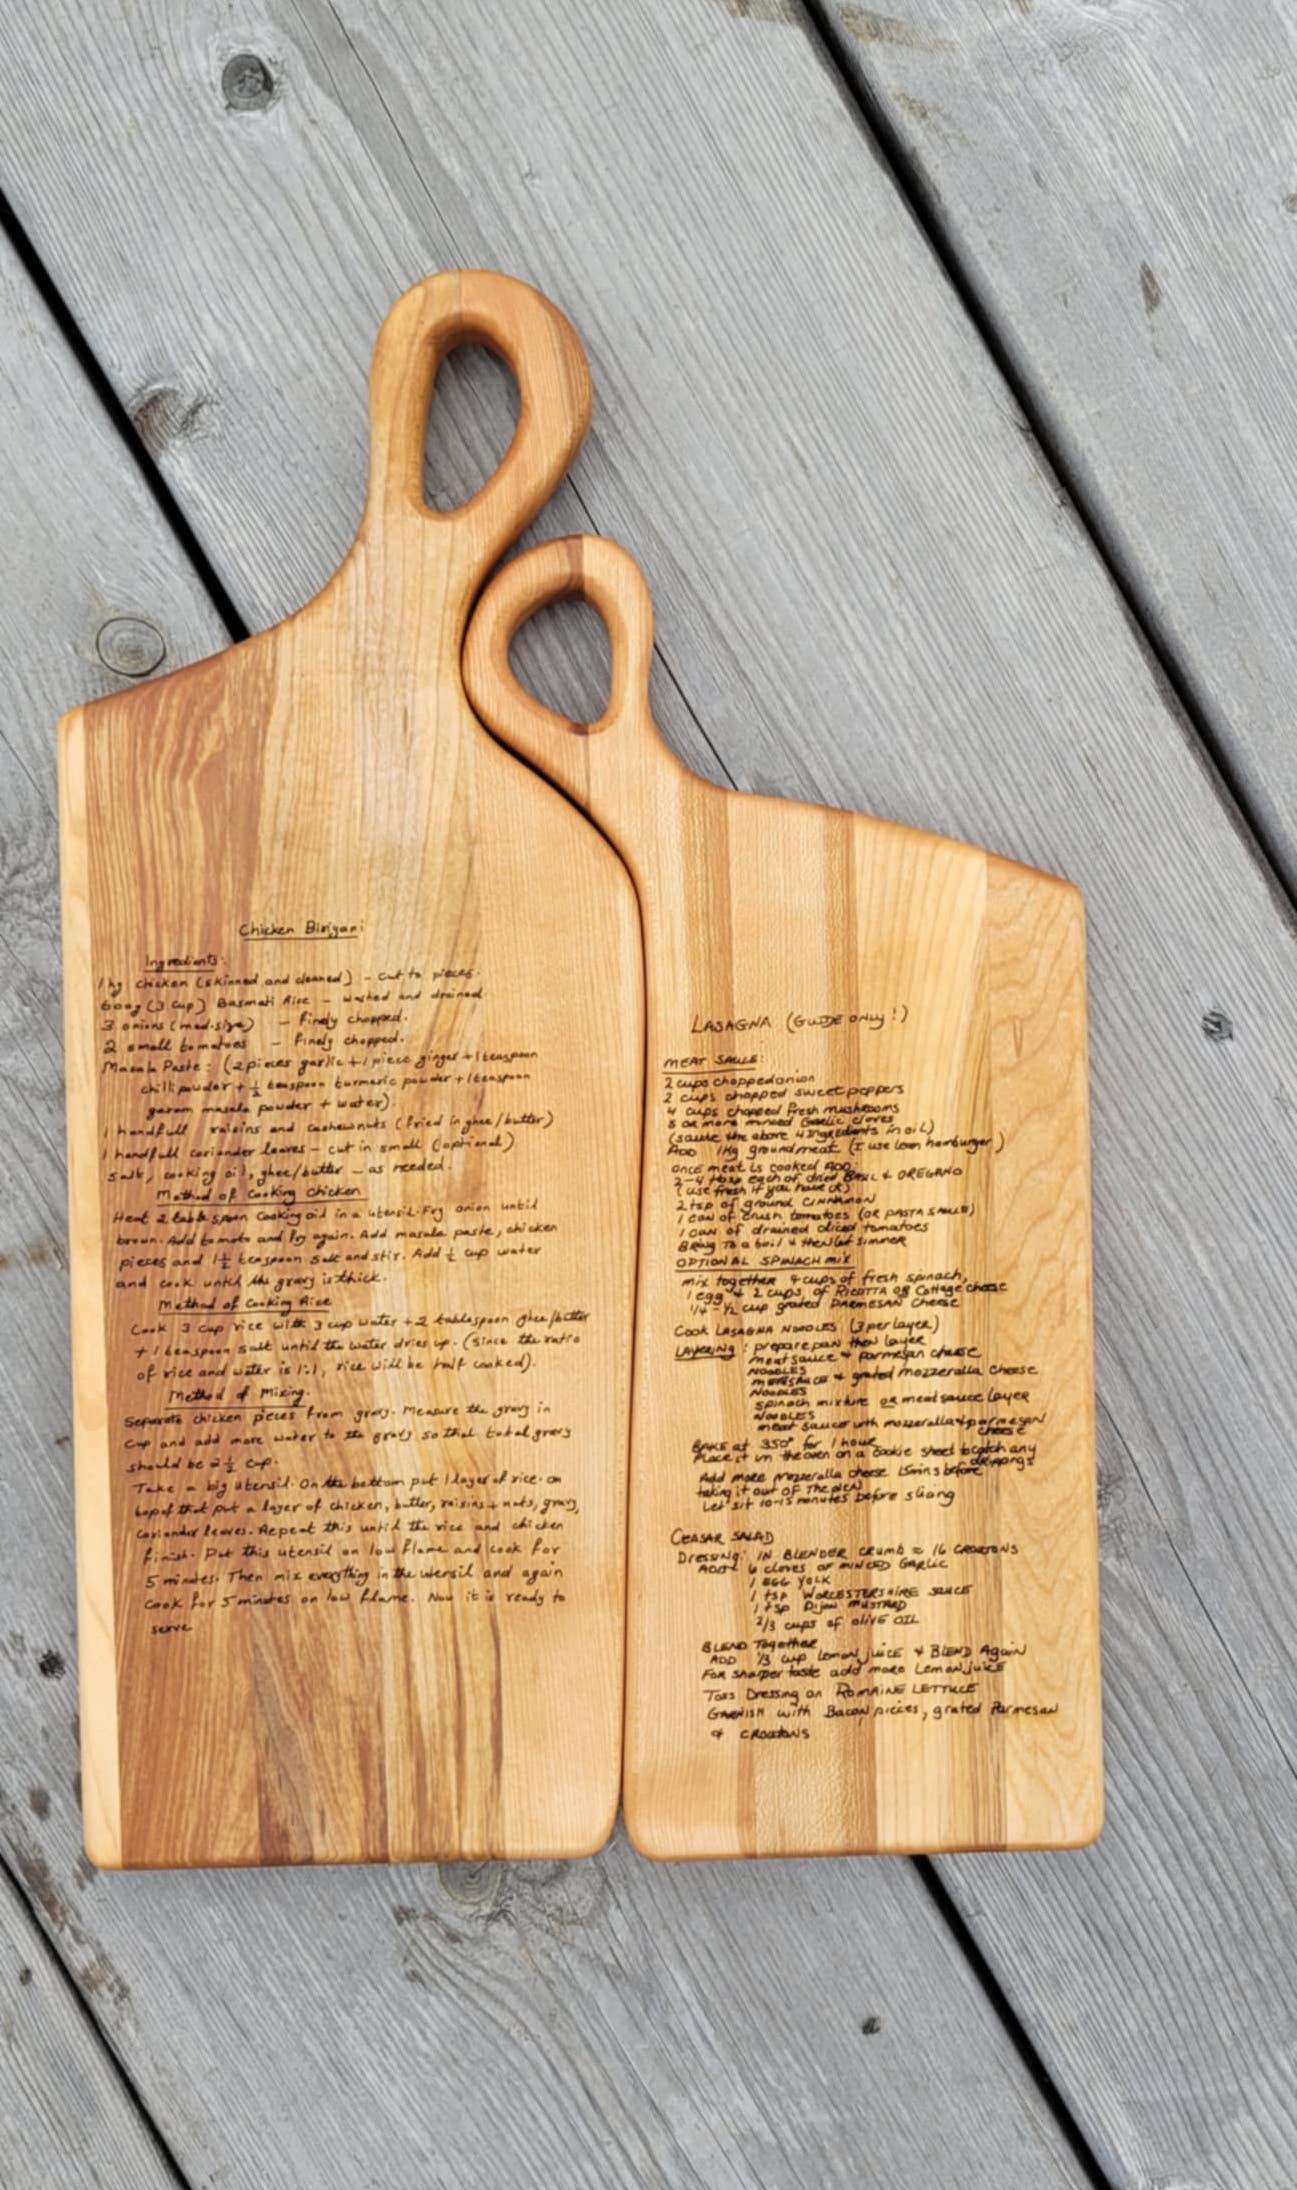 Chicken Biriyani
Ingredients:
1 kg chicken (skinned and cleaned) - cut to pieces.
600g (3 cup) Basmati Rice - washed and drained.
3 onions (med.size) - Finely chopped.
2 small tomatoes - Finely chopped.
Masala Paste: (2 pieces garlic + 1 piece ginger + 1 teaspoon
chilli powder + ½ teaspoon turmeric powder + 1 teaspoon
garam masala powder + water).
1 handfull raisins and cashewnuts (fried in ghee/butter)
1 handfull coriander leaves - cut in small (optional)
Salt, cooking oil, ghee/butter - as needed.
Method of Cooking Chicken
Heat 2 table spoon Cooking oil in a utensil. Fry onion until
brown. Add tomato and fry again. Add masala paste, chicken
pieces and 1½ teaspoon salt and stir. Add ½ cup water
and cook until the gravy is thick.
Method of Cooking Rice
Cook 3 cup rice with 3 cup water + 2 tablespoon ghee/butter
+ 1 teaspoon salt until the water dries up. (Since the ratio
of rice and water is 1:1, rice will be half cooked).
Method of Mixing.
Separate chicken pieces from gravy. Measure the gravy in
cup and add more water to the gravy so that total gravy
should be 2½ cup.
Take a big utensil. On the bottom put 1 layer of rice. on
top of that put a layer of chicken, butter, raisins + nuts, gravy,
coriander leaves. Repeat this until the rice and chicken
finish. Put this utensil on low flame and cook for
5 minutes. Then mix everything in the utensil and again
cook for 5 minutes on low flame. Now it is ready to
serve
LASAGNA (GUIDE ONLY!)
MEAT SAUCE:
2 cups chopped onion
2 cups chopped sweet peppers
4 cups chopped fresh mushrooms
5 or more minced Garlic cloves
(saute the above 4 ingredients in oil)
ADD 1 Kg ground meat (I use lean hamburger)
once meat is cooked ADD:
2-4 tbsp each of dried BASIL & OREGANO
(use fresh if you have it)
2 tsp of ground CINNAMON
1 can of crush tomatoes (OR PASTA SAUCE)
1 can of drained diced tomatoes
BRING TO a boil & then let simmer
OPTIONAL SPINACH MIX
mix together 4 cups of fresh spinach,
1 egg & 2 cups of RICOTTA OR Cottage cheese
1/4 - 1/2 cup grated PARMESAN cheese
Cook LASAGNA NOODLES (3 per layer)
LAYERING: prepare pan then layer
meat sauce & parmesan cheese
NOODLES
MEAT SAUCE & grated mozzeralla cheese
NOODLES
spinach mixture or meat sauce layer
NOODLES
meat sauce with mozzeralla & parmesan
cheese
BAKE at 350° for 1 hour
Place it in the oven on a cookie sheet to catch any
drippings
Add more mozzeralla cheese 15 mins before
taking it out OF The oven
Let sit 10-15 minutes before slicing
CEASAR SALAD
Dressing: IN BLENDER crumb ≈ 16 CROUTONS
ADD: 6 cloves OF MINCED GARLIC
1 EGG YOLK
1 tsp WORCESTERSHIRE SAUCE
1 tsp Dijon MUSTARD
2/3 cups of olive OIL
BLEND Together
ADD 1/3 cup Lemon juice & BLEND Again
For sharper taste add more Lemon juice
Toss Dressing on ROMAINE LETTUCE
GARNISH with Bacon pieces, grated Parmesan
& CROUTONS